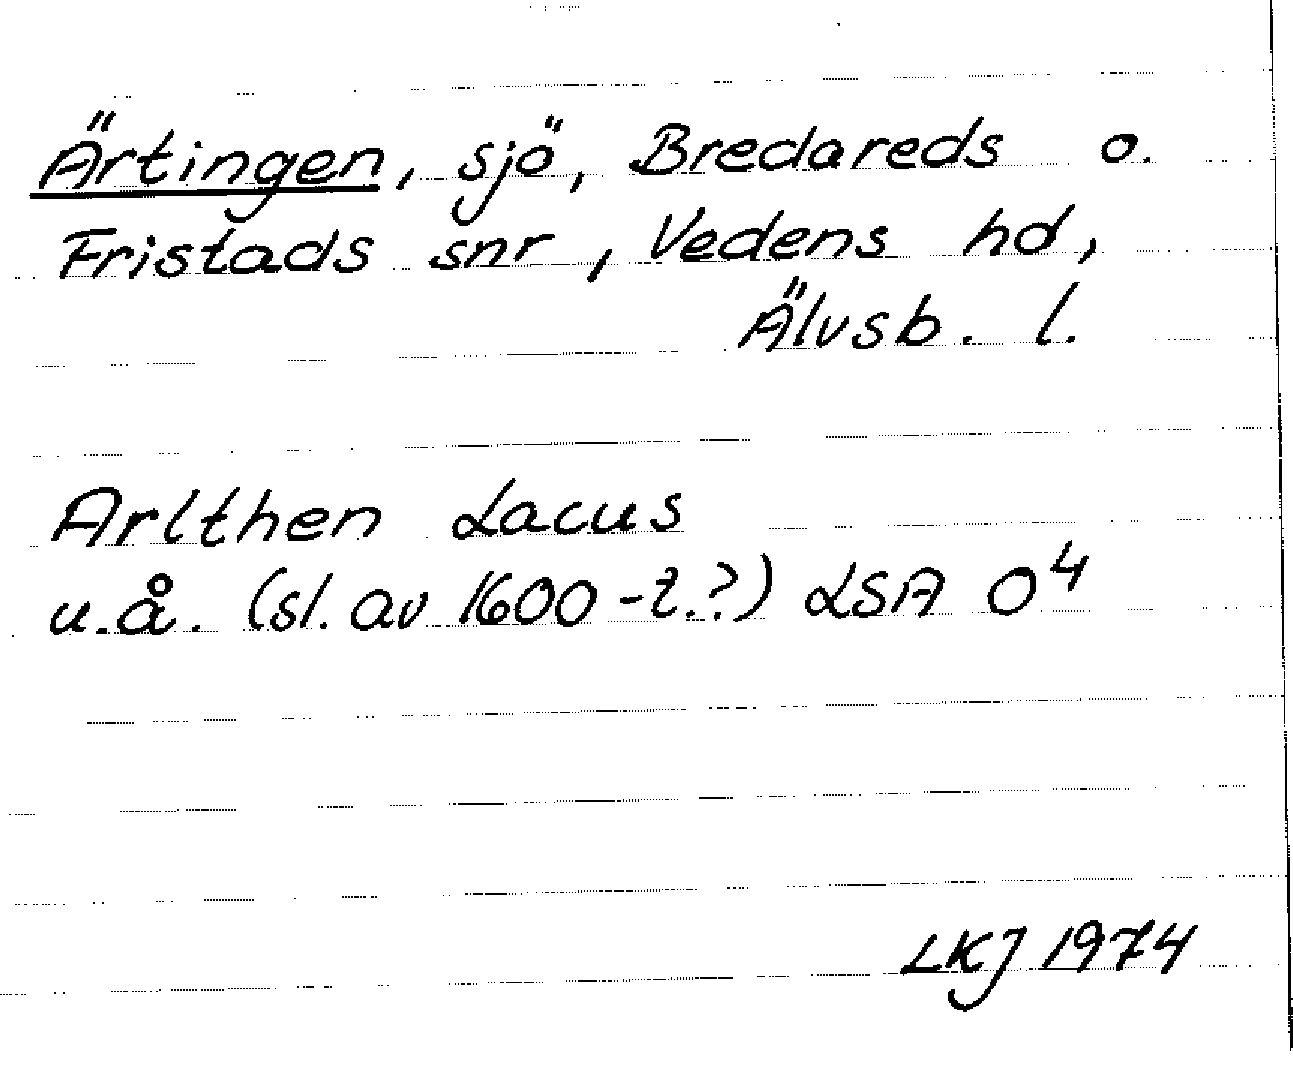 Ärtingen, sjö, Bredareds o.
Fristads snr, Vedens hd,
Älvsb. l.
Arlthen Lacus
u.å. (sl. av 1600-t.?) LSA O⁴
LKJ 1974